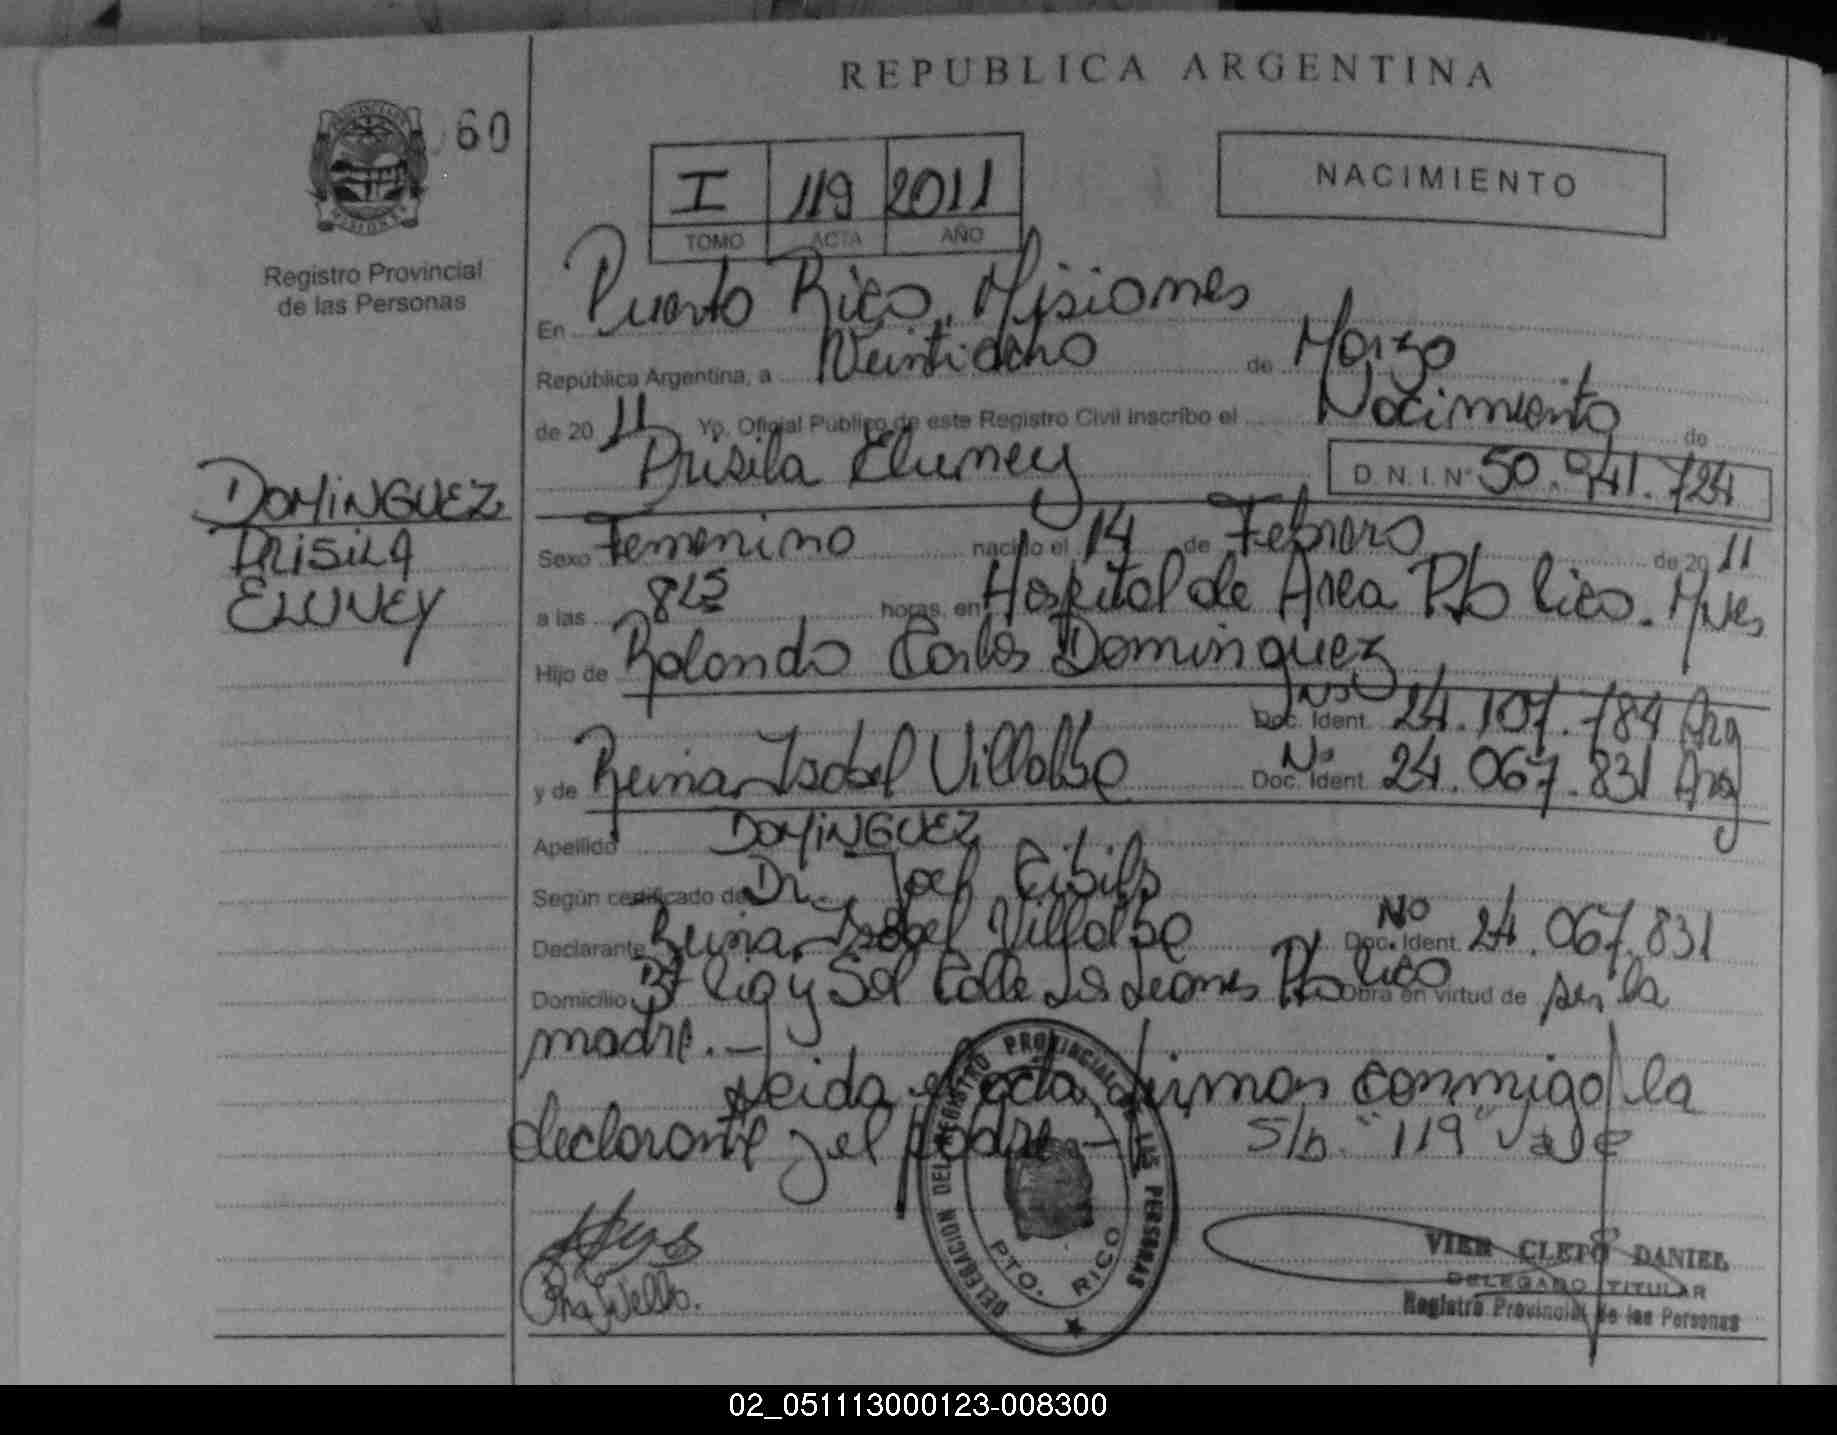 REPUBLICA ARGENTINA
60
NACIMIENTO
I 119 2011
TOMO ACTA AÑO
Registro Provincial
de las Personas
En Puerto Rico, Misiones
República Argentina, a Veintiocho de Marzo
de 2011 Yo, Oficial Público de este Registro Civil inscribo el Nacimiento de
Prisila Eluney
D.N.I. Nº 50.941.724
DOMINGUEZ
PRISILA
ELUNEY
Sexo Femenino nacido el 14 de Febrero de 2011
a las 815 horas, en Hospital de Area Pto Rico. Mnes
Hijo de Rolando Carlos Dominguez
Doc. Ident. 24.107.784 Arg
y de Reina Isabel Villalba Doc. Ident. 24.067.831 Arg
Apellido DOMINGUEZ
Según certificado de Dr. Joel
Declarante Reina Isabel Villalba Doc. Ident. 24.067.831
Domicilio Bº y Sol Calle Los Leones Pto Rico Obra en virtud de ser la
madre.-
Leida el acta, firman conmigo la
declarante y el padre.- S/b. "119" Vale
DELEGACION DEL REGISTRO PROVINCIAL DE LAS PERSONAS
PTO. RICO
VIER CLETO DANIEL
DELEGADO TITULAR
Registro Provincial de las Personas
02_051113000123-008300